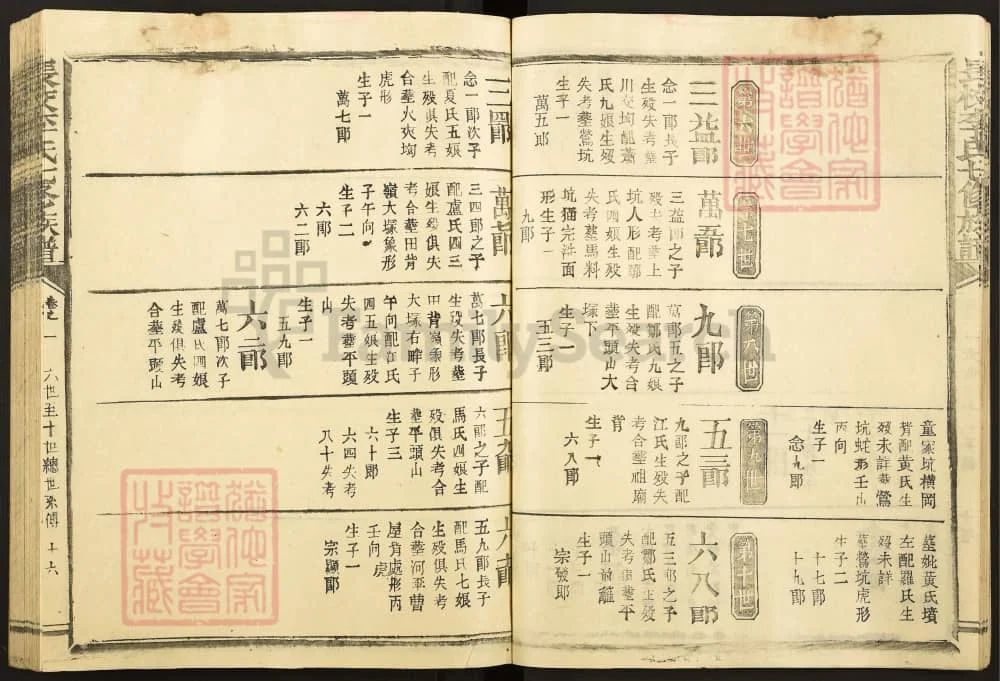 童家坑橫岡
背配黃氏生
歿未詳葬鶯
坑蛇形壬山
丙向
生子一
念九郎
葬妣黃氏墳
左配羅氏生
歿未詳
葬鶯坑虎形
生子二
十七郎
十九郎
第六世
三益郎
念一郎長子
生歿失考葬
川交坳配蕭
氏九娘生歿
失考葬鶯坑
生子一
萬五郎
第七世
萬五郎
三益郎之子
歿失考葬上
坑人形配鄒
氏四娘生歿
失考葬馬料
坑猫兒洗面
形生子一
九郎
第八世
九郎
萬郎五之子
配鄒氏九娘
生歿失考合
葬平頭山大
塚下
生子一
五三郎
第九世
五三郎
九郎之子配
江氏生歿失
考合葬祖廟
背
生子一
六八郎
第十世
六八郎
五三郎之子
配鄒氏生歿
失考俱葬平
頭山前離
生子一
宗發郎
三四郎
念一郎次子
配夏氏五娘
生歿俱失考
合葬火夾坳
虎形
生子一
萬七郎
萬七郎
三四郎之子
配盧氏四三
娘生歿俱失
考合葬田背
嶺大塚象形
子午向
生子二
六郎
六二郎
六郎
萬七郎長子
生歿失考葬
田背嶺象形
大塚右畔子
午向配江氏
四五娘生歿
失考葬平頭
山
生子一
五九郎
六二郎
萬七郎次子
配盧氏四娘
生歿俱失考
合葬平頭山
五九郎
六郎之子配
馬氏四娘生
歿俱失考合
葬平頭山
生子三
六十郎
六四失考
八十失考
六十郎
五九郎長子
配馬氏七娘
生歿俱失考
合葬河亞曹
屋背虎形丙
壬向
生子一
宗顯郎
卷之一
六世至十世總世系傳
十六
FamilySearch